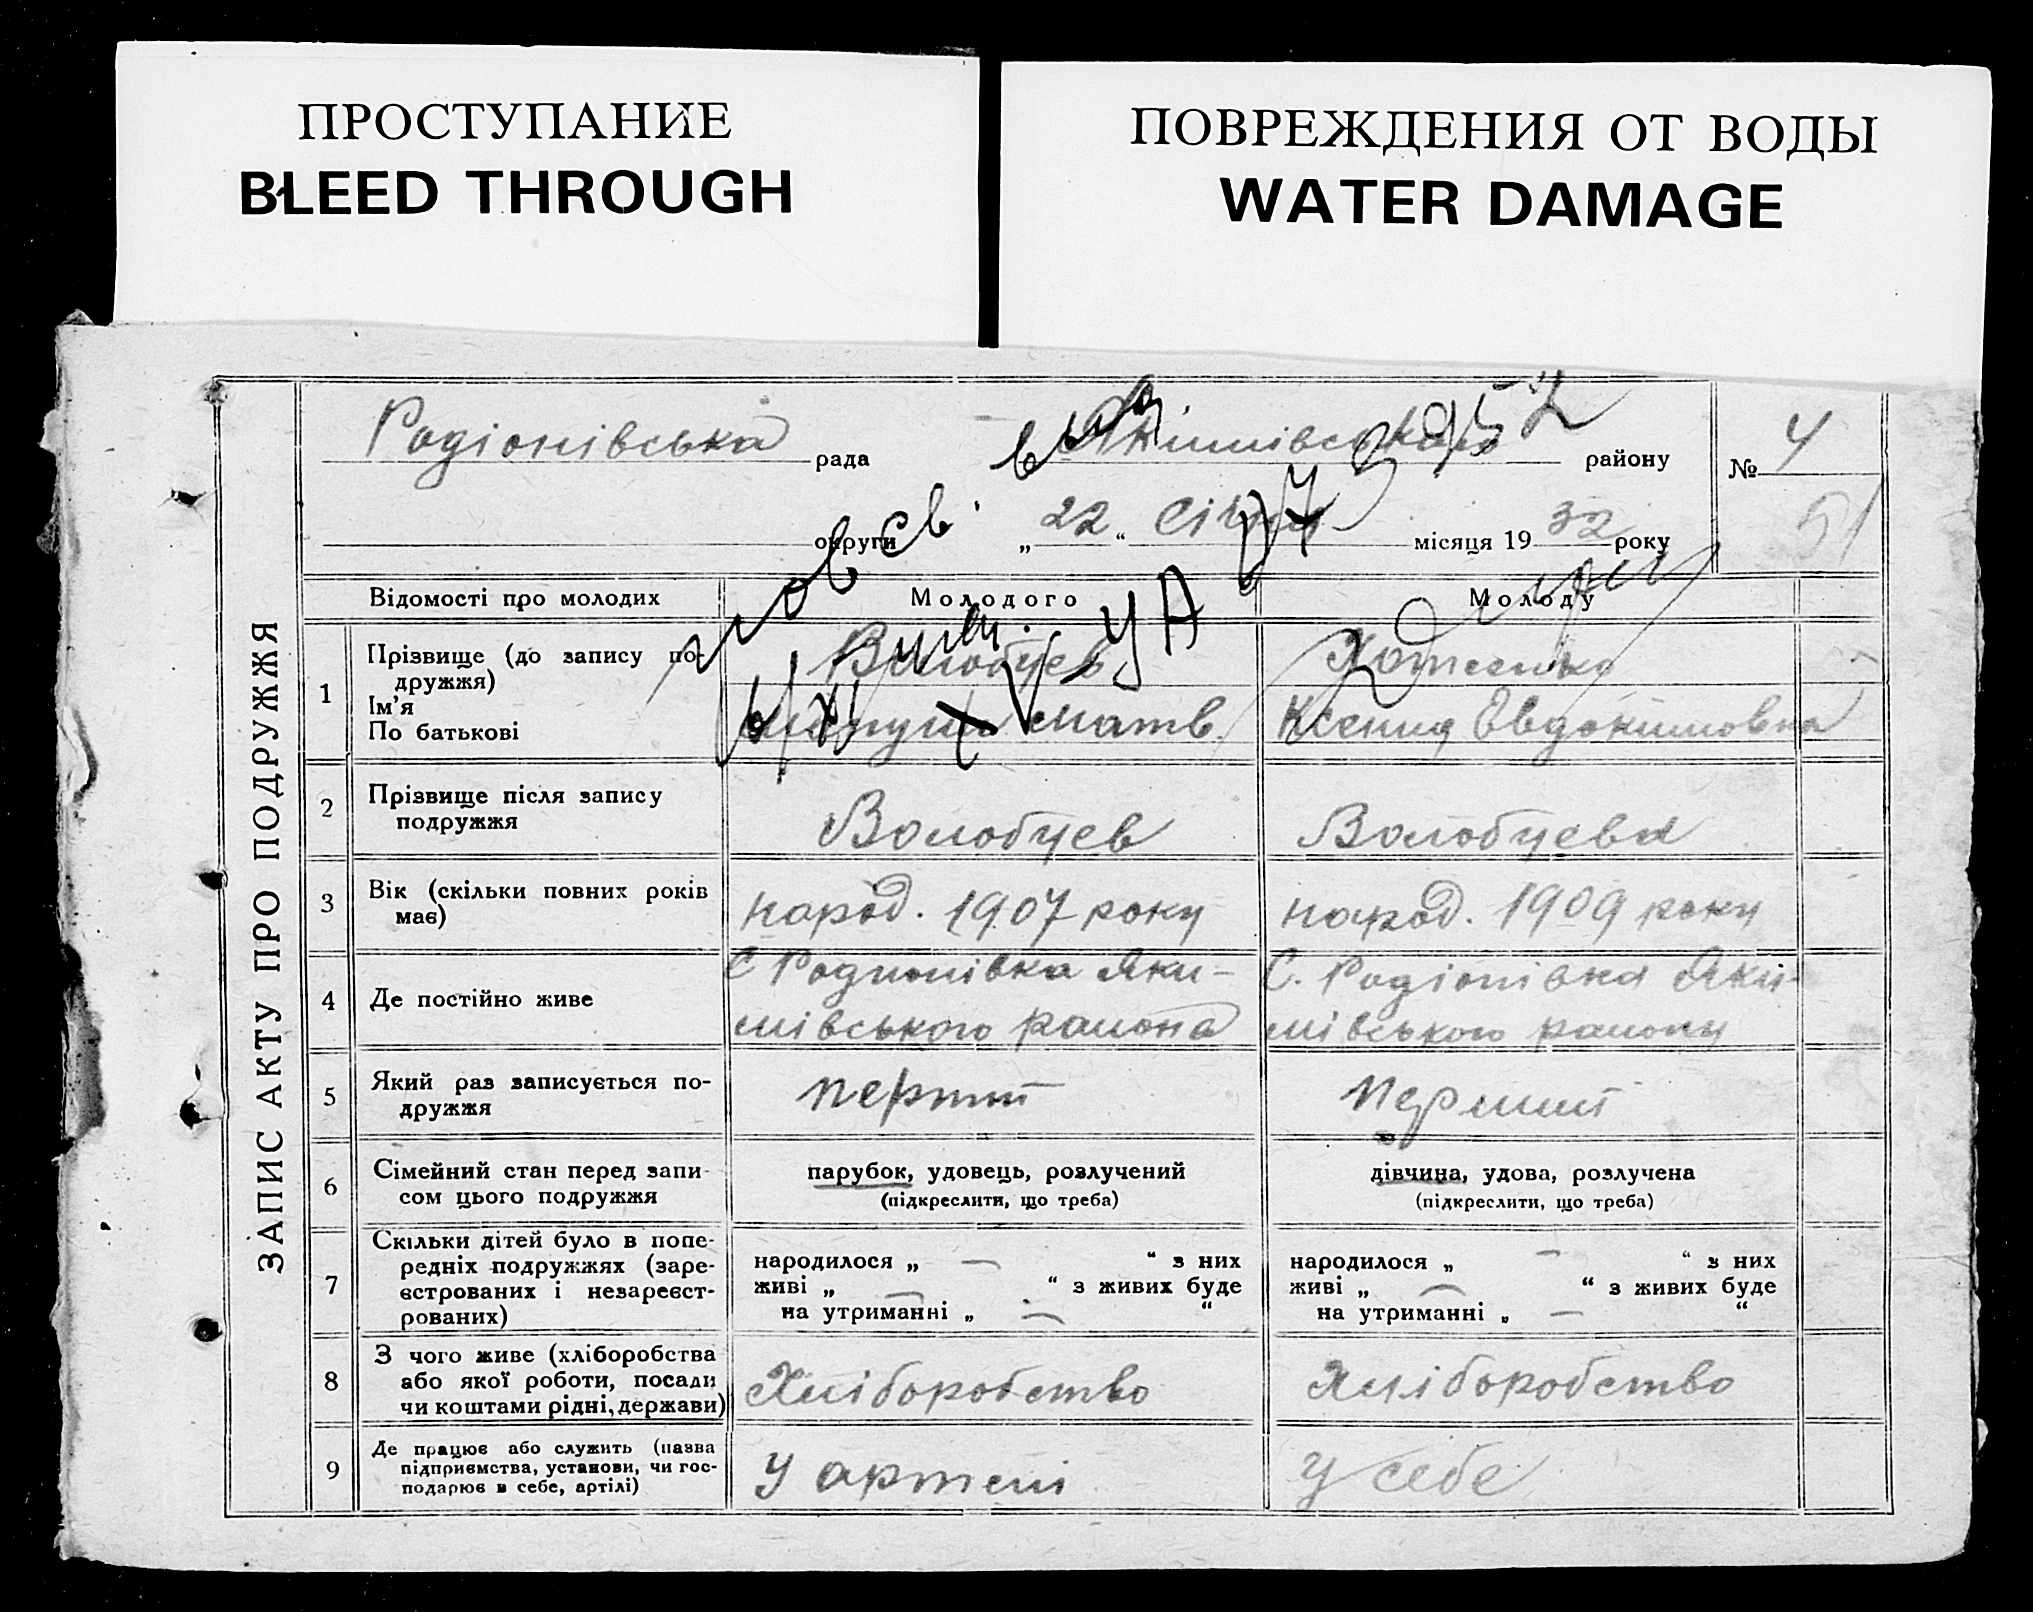 ПРОСТУПАНИЕ
BLEED THROUGH
ПОВРЕЖДЕНИЯ ОТ ВОДЫ
WATER DAMAGE
ЗАПИС АКТУ ПРО ПОДРУЖЖЯ
Родіонівська рада Якимівського району № 4
округи „ 22 “ Січня місяця 19 32 року 51
Відомості про молодих Молодого Молоду
1 Прізвище (до запису по-
дружжя)
Ім'я
По батькові
Волобуев
Матв.
Ксения Евдокимовна
2 Прізвище після запису
подружжя
Волобуев Волобуева
3 Вік (скільки повних років
має)
народ. 1907 року народ. 1909 року
4 Де постійно живе
С Родионівка Яки-
мівського района
С. Родіонівка Яки-
мівського району
5 Який раз записується по-
дружжя
перший перший
6 Сімейний стан перед запи-
сом цього подружжя
парубок, удовець, розлучений
(підкреслити, що треба)
дівчина, удова, розлучена
(підкреслити, що треба)
7 Скільки дітей було в попе-
редніх подружжях (заре-
єстрованих і незареєст-
рованих)
народилося „ — “ з них
живі „ — “ з живих буде
на утриманні „ — “
народилося „ — “ з них
живі „ — “ з живих буде
на утриманні „ — “
8 З чого живе (хліборобства
або якої роботи, посади
чи коштами рідні, держави)
Хліборобство Хліборобство
9 Де працює або служить (назва
підприємства, установи, чи гос-
подарює в себе, артілі)
у артелі у себе